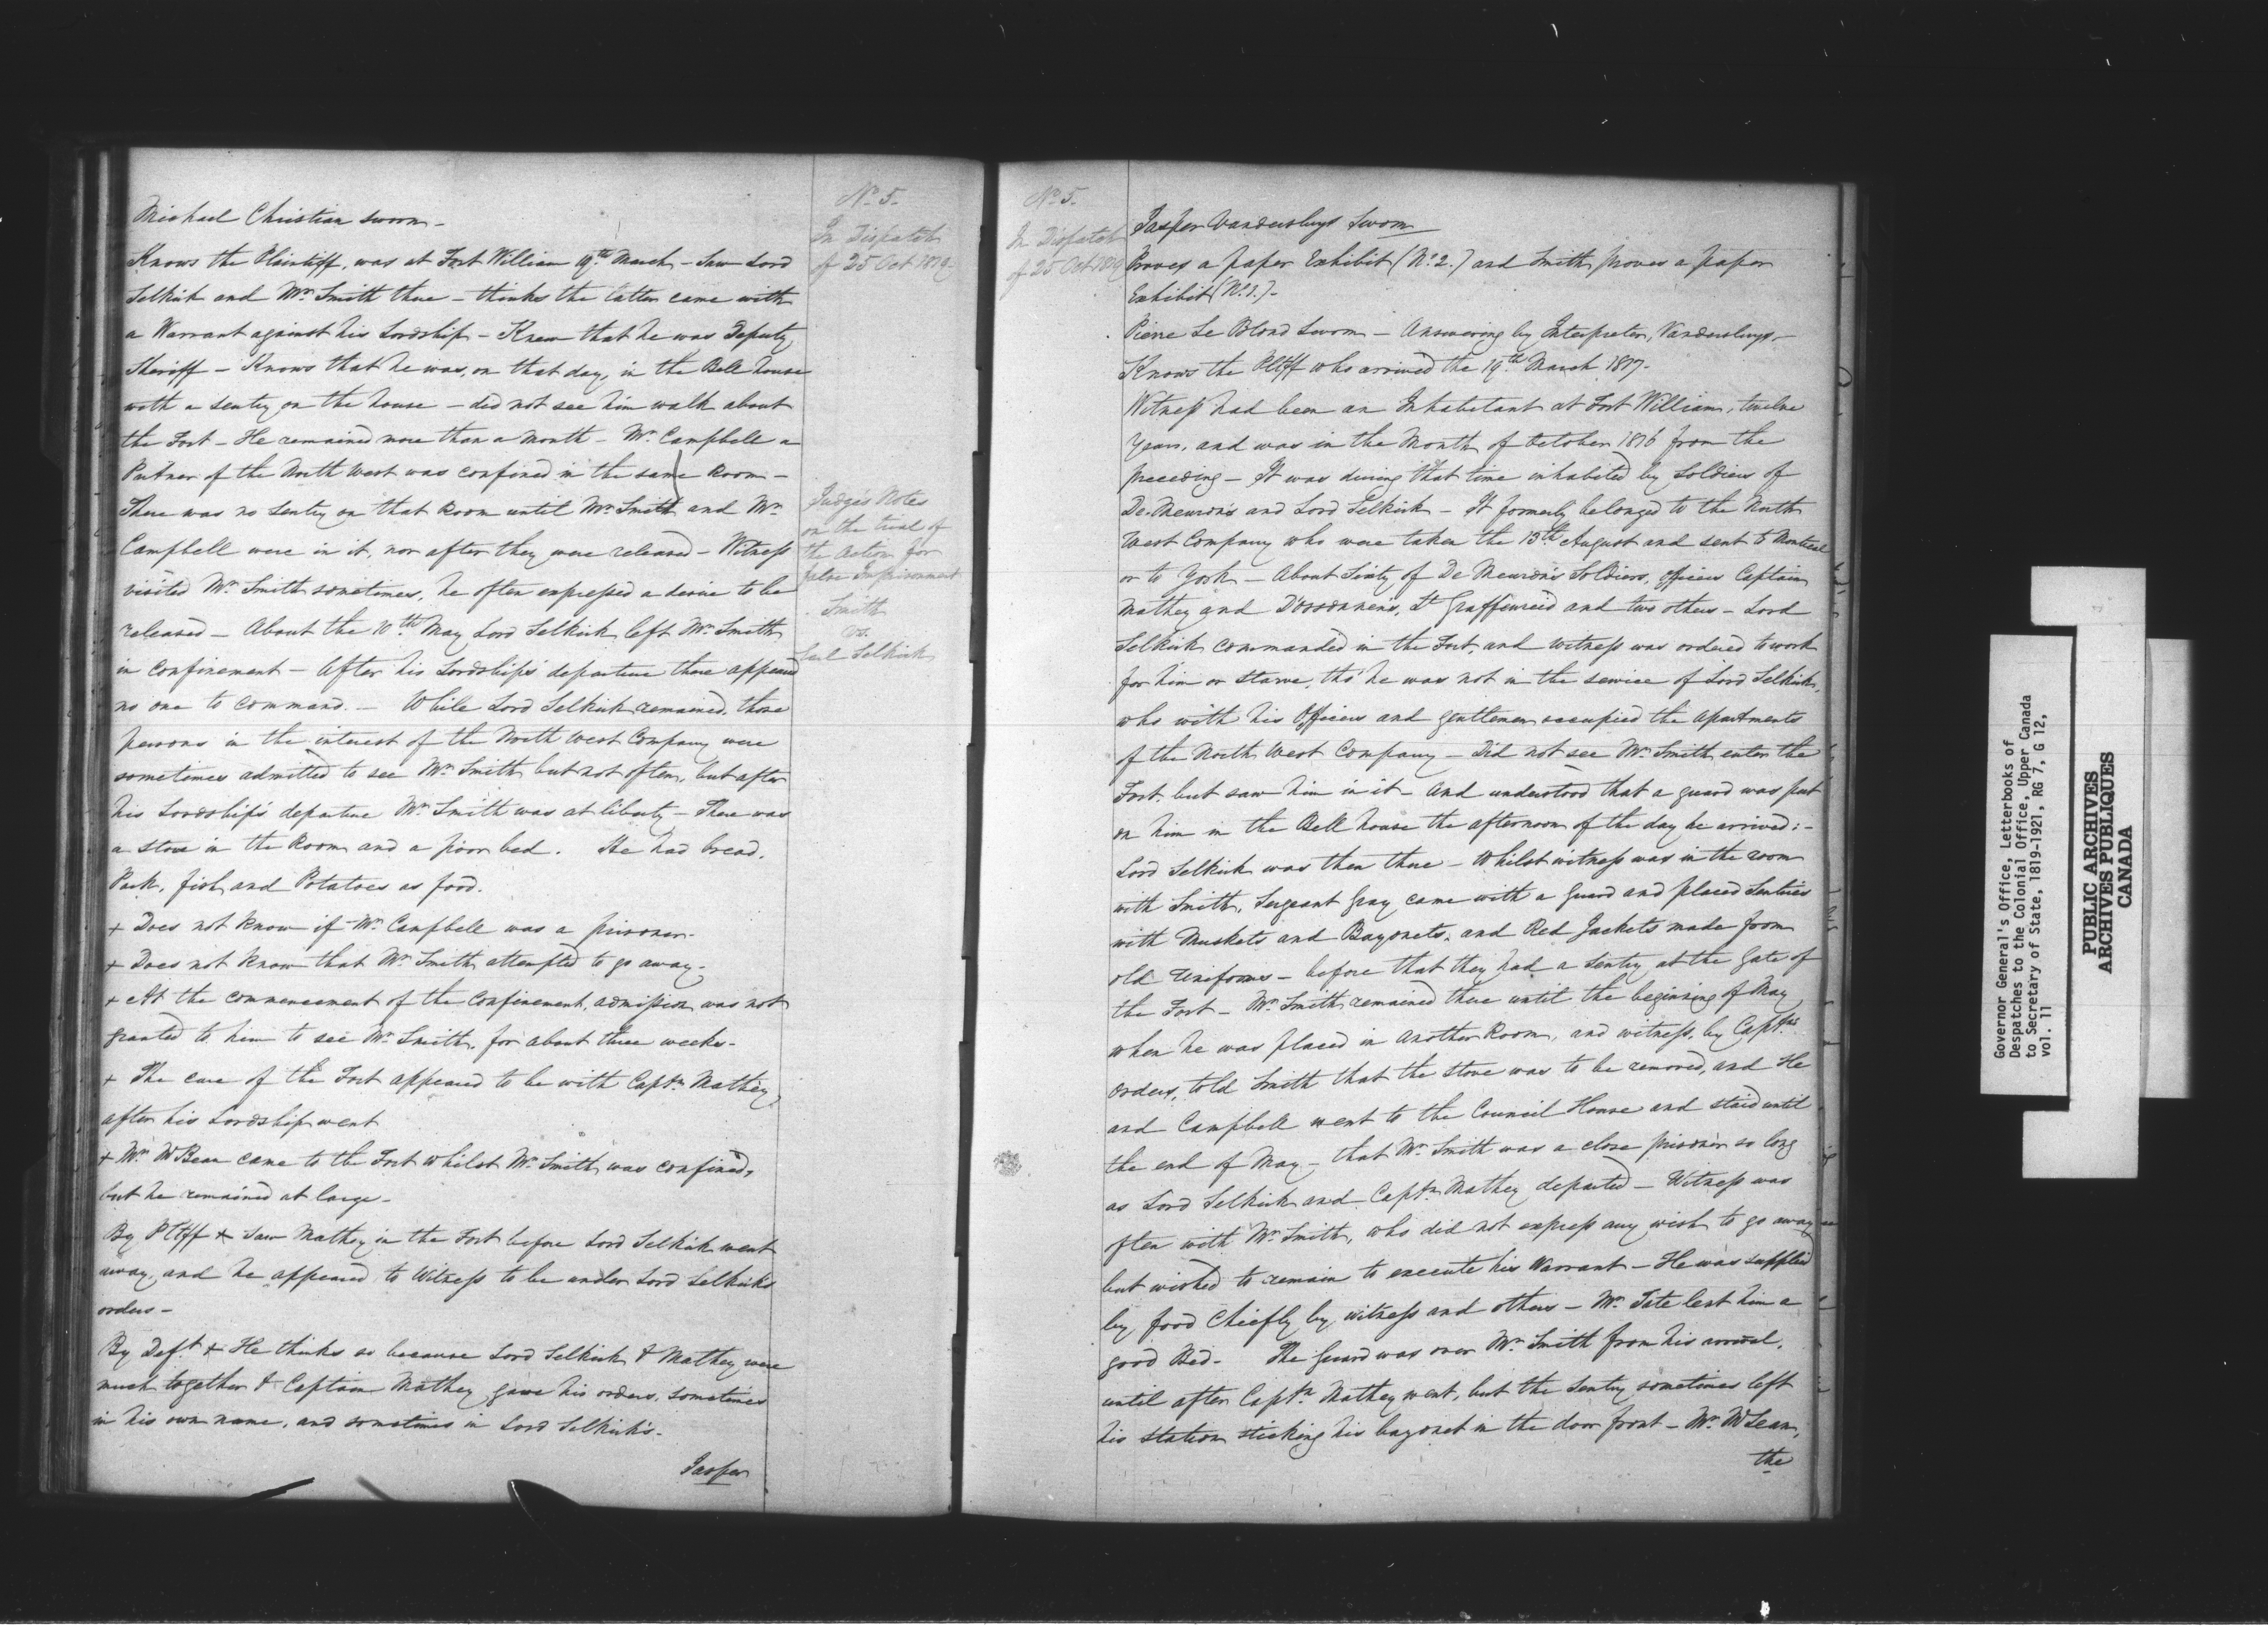 Michael Christian sworn –
Knows the Plaintiff, was at Fort William 19th March – Saw Lord
Selkirk and Mr Smith there – thinks the latter came with
a Warrant against his Lordship – Knew that he was Deputy
Sheriff – Knows that he was, on that day, in the Bell house
with a sentry on the house – did not see him walk about
the Fort – He remained more than a month – Mr Campbell a
Partner of the North West was confined in the same Room –
There was no Sentry on that Room until Mr Smith and Mr
Campbell were in it, nor after they were released – Witness
visited Mr Smith sometimes, he often expressed a desire to be
released – About the 10th May Lord Selkirk left Mr Smith
in confinement – After his Lordship's departure there appeared
no one to command. – While Lord Selkirk remained, those
persons in the interest of the North West Company were
sometimes admitted to see Mr Smith but not often, but after
his Lordship's departure Mr Smith was at liberty – There was
a stove in the Room and a poor bed. He had bread,
Pork, fish and Potatoes as food.
+ Does not know if Mr Campbell was a prisoner –
+ Does not know that Mr Smith attempted to go away –
+ At the commencement of the confinement, admission was not
granted to him to see Mr Smith, for about three weeks –
+ The care of the Fort appeared to be with Captn Mathey
after his Lordship went
+ Mr McBean came to the Fort whilst Mr Smith was confined,
but he remained at large –
By Pltff + Saw Mathey in the Fort before Lord Selkirk went
away, and he appeared to Witness to be under Lord Selkirk's
orders –
By Deft + He thinks so because Lord Selkirk & Mathey were
much together & Captain Mathey gave his orders, sometimes
in his own name, and sometimes in Lord Selkirk's –
Jasper
No 5.
In Dispatch
of 25 Oct 1819
Judge's Notes
on the trial of
the Action for
false Imprisonment
Smith
vs.
Earl Selkirk
No 5.
In Dispatch
of 25 Oct 1819
Jasper Vandersluys Sworn
Proves a paper Exhibit (No 2.) and Smith proves a paper
Exhibit (No 1.) –
Pierre Le Blond Sworn – Answering by Interpreter, Vandersluys –
Knows the Pltff who arrived the 19th March 1817 –
Witness had been an Inhabitant at Fort William, twelve
Years, and was in the Month of October 1816 from the
preceding – It was during that time inhabited by Soldiers of
De Meuron's and Lord Selkirk – It formerly belonged to the North
West Company who were taken the 13th August and sent to Montreal
or to York – About Sixty of De Meuron's Soldiers, officers Captain
Mathey and D'orsonnen's, Lt Graffenreid and two others – Lord
Selkirk commanded in the Fort, and witness was ordered to work
for him or starve, tho' he was not in the service of Lord Selkirk,
who with his Officers and gentlemen occupied the apartments
of the North West Company – Did not see Mr Smith enter the
Fort, but saw him in it – And understood that a guard was put
on him in the Bell house the afternoon of the day he arrived: –
Lord Selkirk was then there – Whilst witness was in the room
with Smith, Sergeant Gray came with a guard and placed Sentries
with Muskets and Bayonets, and Red Jackets made from
old Uniforms – before that they had a Sentry at the Gate of
the Fort – Mr Smith remained there until the beginning of May
when he was placed in another Room, and witness, by Captns
orders, told Smith that the stove was to be removed, and He
and Campbell went to the Council House and staid until
the end of May – that Mr Smith was a close prisoner so long
as Lord Selkirk and Captn Mathey departed – Witness was
often with Mr Smith, who did not express any wish to go away
but wished to remain to execute his Warrant – He was supplied
by food Chiefly by witness and others – Mr Tate lent him a
good Bed – The Guard was over Mr Smith from his arrival,
until after Captn Mathey went, but the Sentry sometimes left
his station sticking his bayonet in the door front – Mr McLean,
the
Governor General's Office, Letterbooks of
Despatches to the Colonial Office, Upper Canada
to Secretary of State, 1819-1921, RG 7, G 12,
vol. 11
PUBLIC ARCHIVES
ARCHIVES PUBLIQUES
CANADA